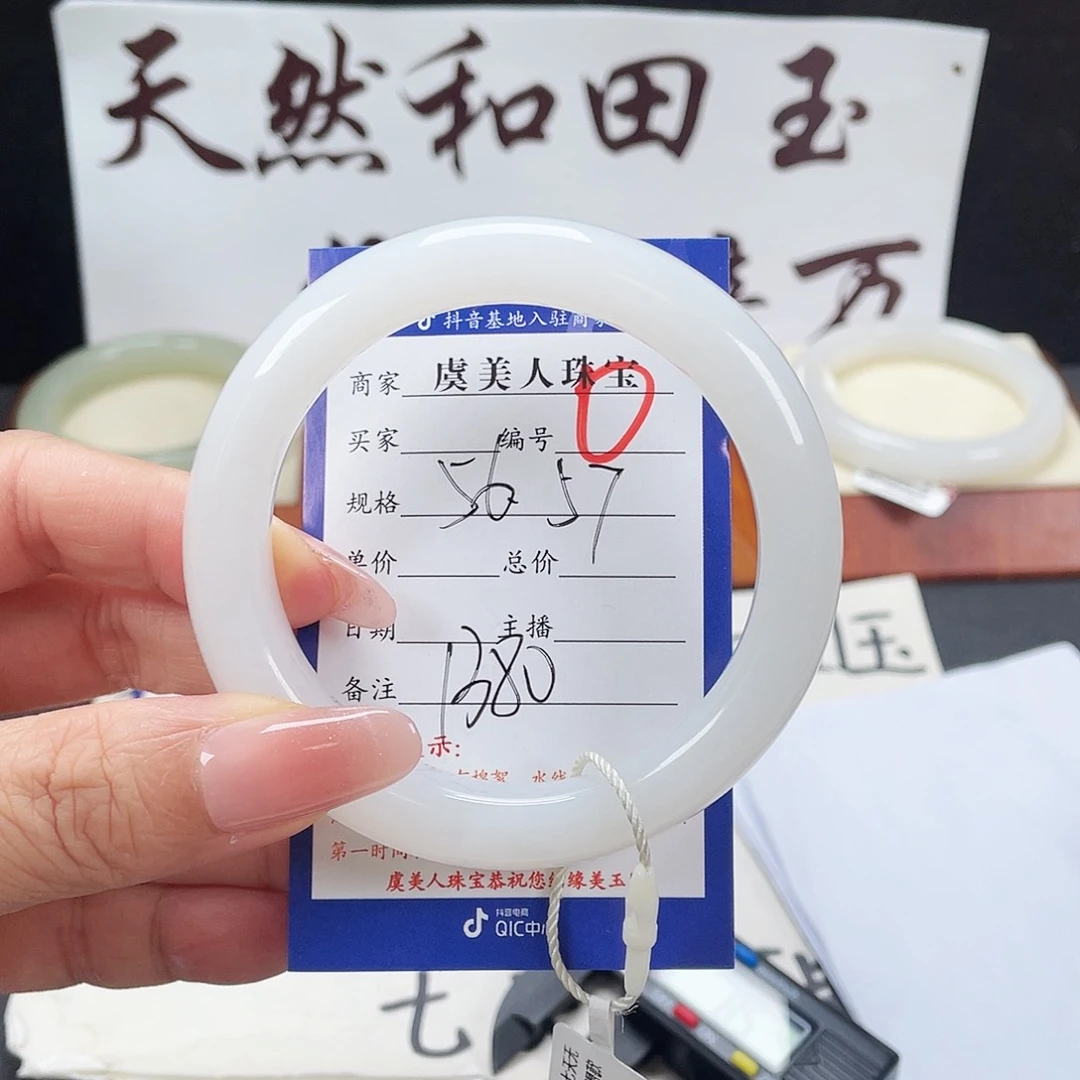 天然和田玉
万
抖音基地入驻商家
商家 虞美人珠宝
买家 编号
规格 56 57
单价 总价
日期 主播
备注 1380
示:
水线
第一时间
虞美人珠宝恭祝您结缘美玉
抖音电商
QIC中心
玉
七